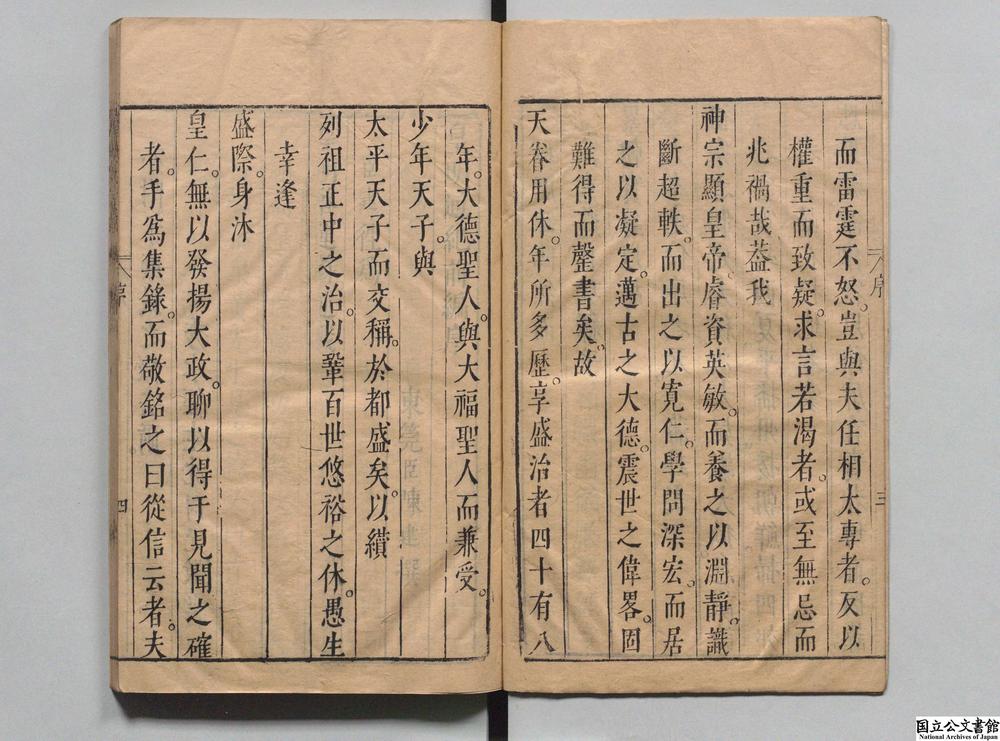 而雷霆不怒。豈與夫任相太專者。反以
權重而致疑。求言若渴者。或至無忌而
兆禍哉葢我
神宗顯皇帝。睿資英敏。而養之以淵靜。識
斷超軼。而出之以寬仁。學問深宏。而居
之以凝定。邁古之大德。震世之偉畧。固
難得而罄書矣。故
天眷用休。年所多歷。享盛治者四十有八
序
三
年。大德聖人。與大福聖人而兼受。
少年天子。與
太平天子而交稱。於都盛矣。以纘
列祖正中之治。以鞏百世悠裕之休。愚生
幸逢
盛際。身沐
皇仁。無以發揚大政。聊以得于見聞之確
者。手爲集錄。而敬銘之曰從信云者。夫
序
四
国立公文書館
National Archives of Japan